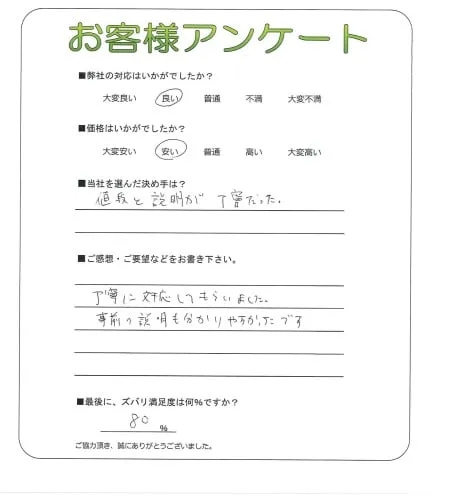 お客様アンケート
■弊社の対応はいかがでしたか？
大変良い 良い 普通 不満 大変不満
■価格はいかがでしたか？
大変安い 安い 普通 高い 大変高い
■当社を選んだ決め手は？
値段と説明が丁寧だった。
■ご感想・ご要望などをお書き下さい。
丁寧に対応してもらいました。
事前の説明も分かりやすかったです
■最後に、ズバリ満足度は何％ですか？
80 %
ご協力頂き、誠にありがとうございました。